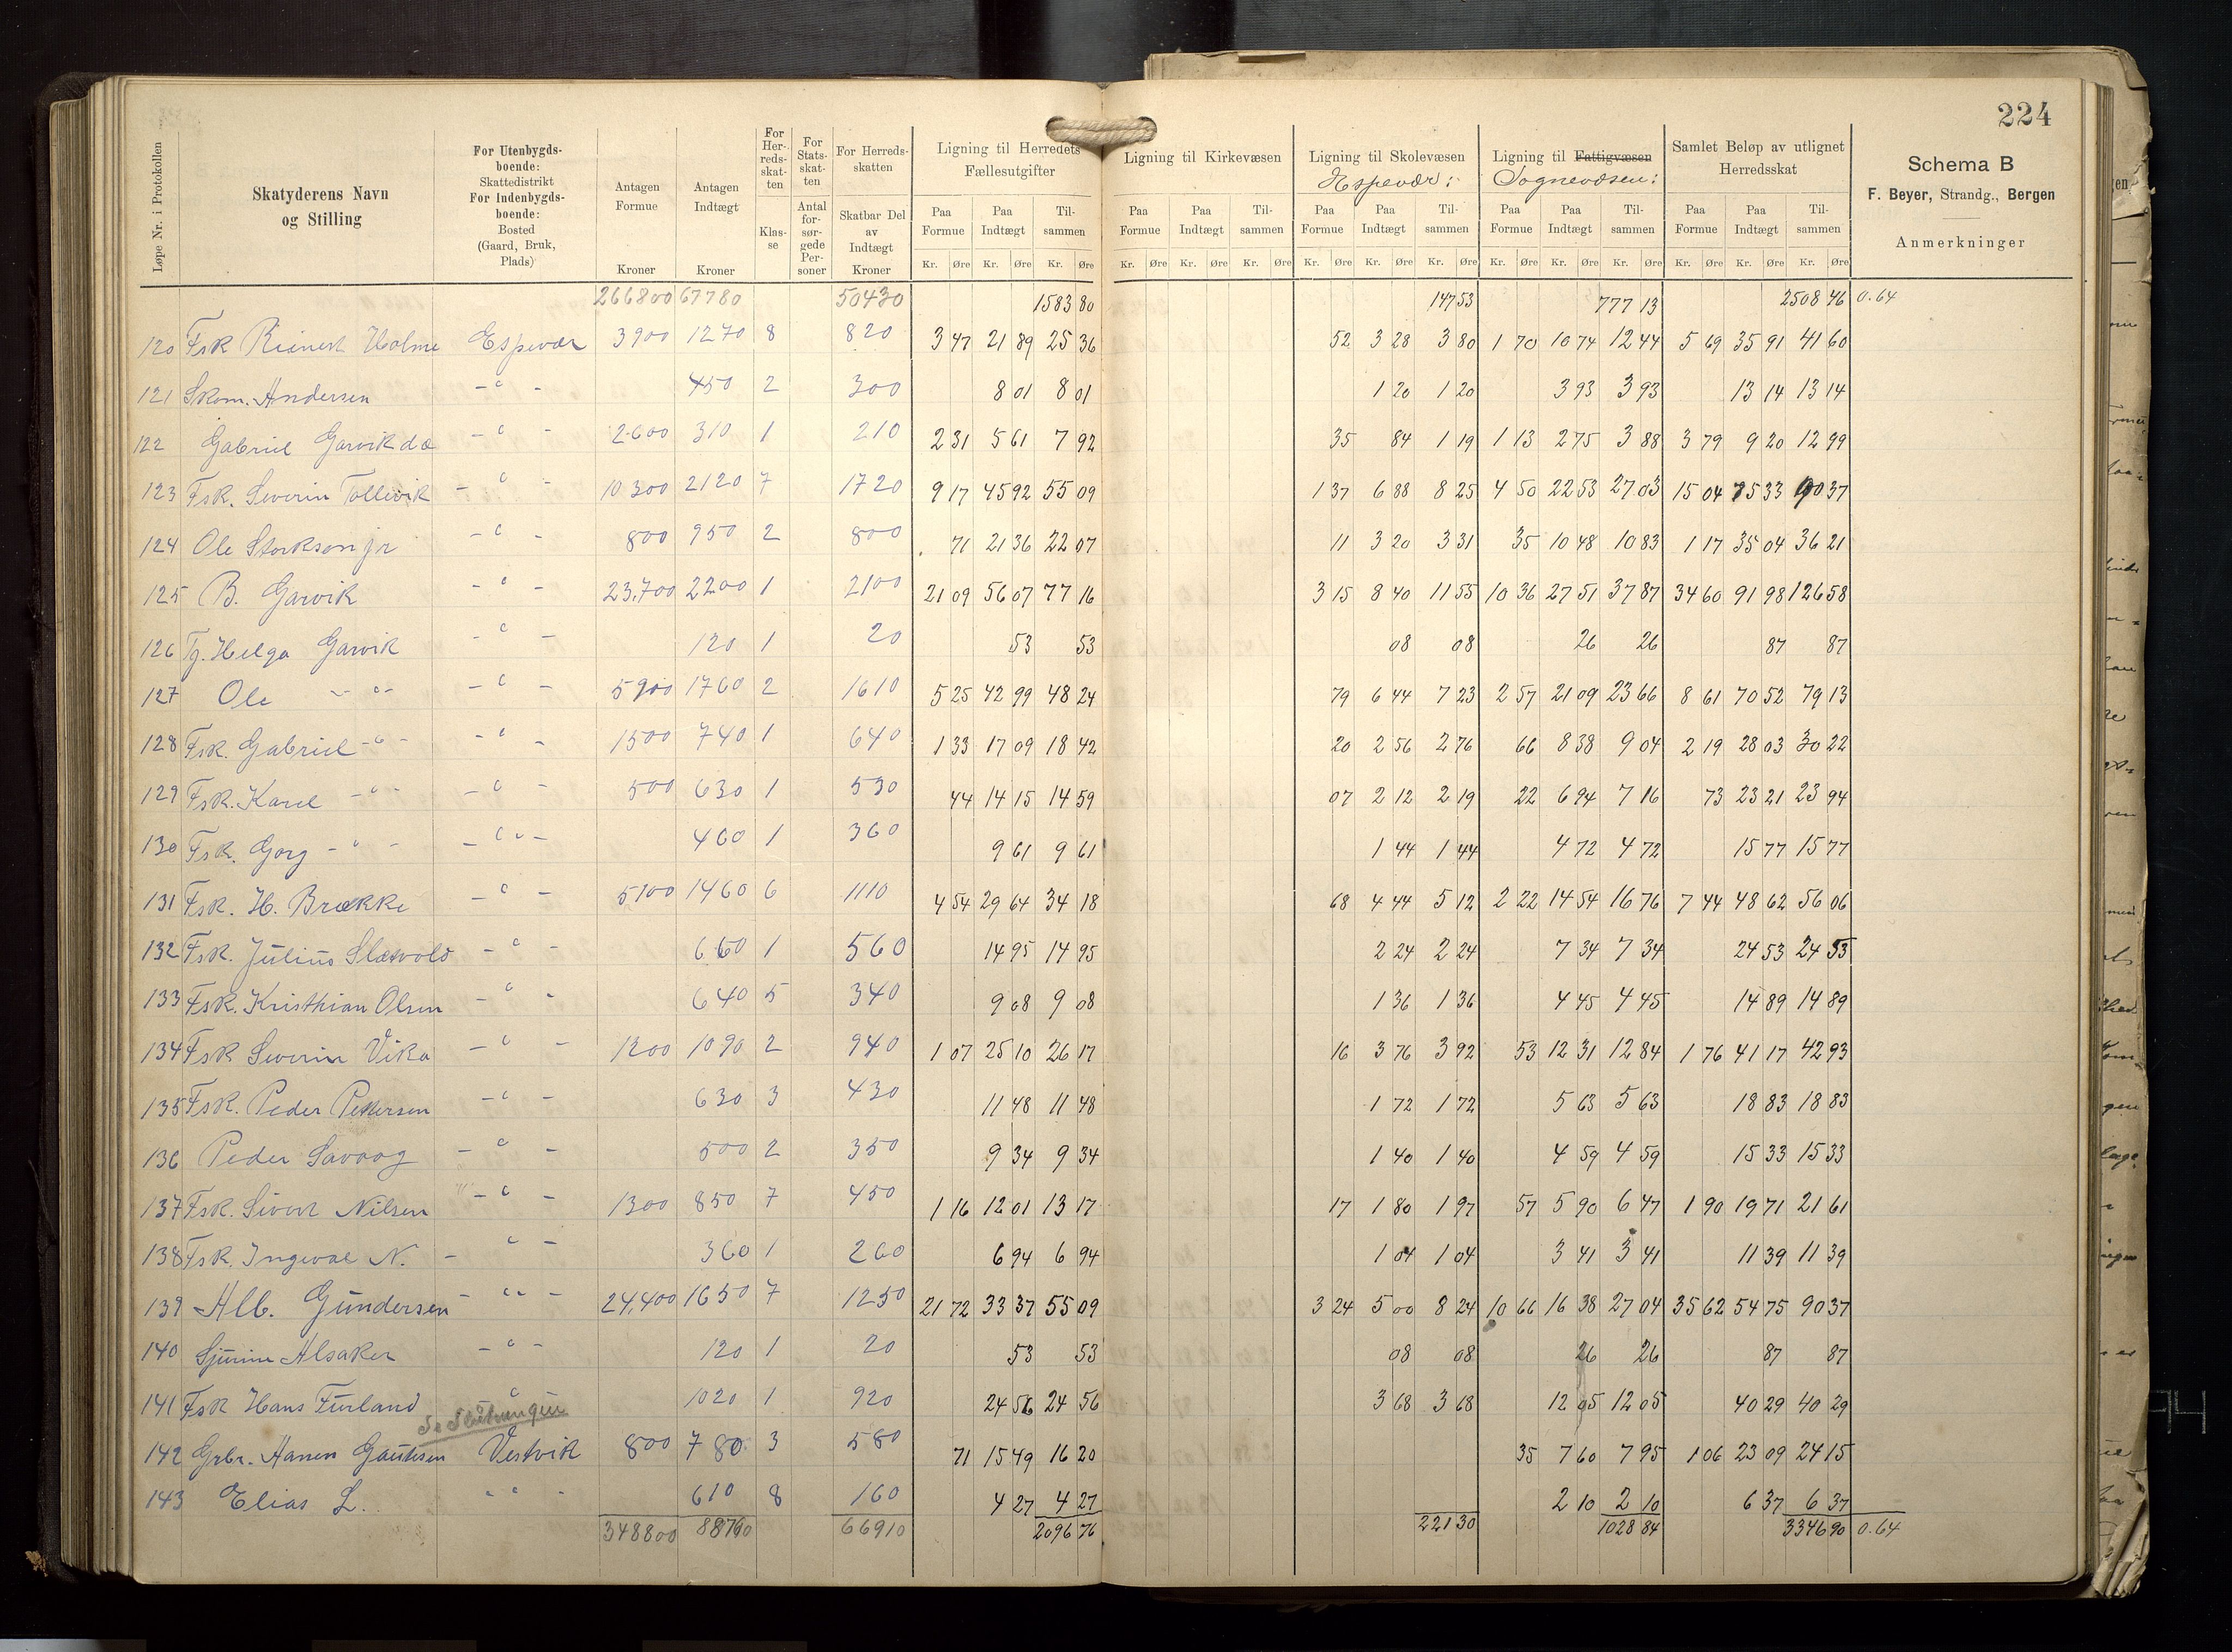 224
Løpe Nr. i Protokollen
Skatyderens Navn og Stilling
For Utenbygdsboende: Skattedistrikt For Indenbygdsboende: Bosted (Gaard, Bruk, Plads)
Antagen Formue Kroner
Antagen Indtægt Kroner
For Herredsskatten Klasse
For Statsskatten Antal forsørgede Personer
For Herredsskatten Skatbar Del av Indtægt Kroner
Ligning til Herredets Fællesutgifter
Ligning til Kirkevæsen
Ligning til Skolevæsen Espevær:
Ligning til Fattigvæsen Sognevæsen:
Samlet Beløp av utlignet Herredsskat
Schema B
F. Beyer, Strandg., Bergen
Anmerkninger
Paa Formue Paa Indtægt Tilsammen Paa Formue Paa Indtægt Tilsammen Paa Formue Paa Indtægt Tilsammen Paa Formue Paa Indtægt Tilsammen Paa Formue Paa Indtægt Tilsammen
Kr. Øre Kr. Øre Kr. Øre Kr. Øre Kr. Øre Kr. Øre Kr. Øre Kr. Øre Kr. Øre Kr. Øre Kr. Øre Kr. Øre Kr. Øre Kr. Øre Kr. Øre
266800 67780 50430 1583 80 147 53 777 13 2508 46 0.64
120 Fsk Reinert Holme Espevær 3900 1270 8 820 3 47 21 89 25 36 52 3 28 3 80 1 70 10 74 12 44 5 69 35 91 41 60
121 Skom. Andersen - " - 450 2 300 8 01 8 01 1 20 1 20 3 93 3 93 13 14 13 14
122 Gabriel Garvik dæ - " - 2600 310 1 210 2 31 5 61 7 92 35 84 1 19 1 13 2 75 3 88 3 79 9 20 12 99
123 Fsk. Severin Tollevik - " - 10300 2120 7 1720 9 17 45 92 55 09 1 37 6 88 8 25 4 50 22 53 27 03 15 04 75 33 90 37
124 Ole Storkson jr - " - 800 950 2 800 71 21 36 22 07 11 3 20 3 31 35 10 48 10 83 1 17 35 04 36 21
125 B. Garvik - " - 23,700 2200 1 2100 21 09 56 07 77 16 3 15 8 40 11 55 10 36 27 51 37 87 34 60 91 98 126 58
126 Tj. Helga Garvik - " - 120 1 20 53 53 08 08 26 26 87 87
127 Ole - " - - " - 5900 1760 2 1610 5 25 42 99 48 24 79 6 44 7 23 2 57 21 09 23 66 8 61 70 52 79 13
128 Fsk. Gabriel - " - - " - 1500 740 1 640 1 33 17 09 18 42 20 2 56 2 76 66 8 38 9 04 2 19 28 03 30 22
129 Fsk. Karl - " - - " - 500 630 1 530 44 14 15 14 59 07 2 12 2 19 22 6 94 7 16 73 23 21 23 94
130 Fsk. Gorg - " - - " - 460 1 360 9 61 9 61 1 44 1 44 4 72 4 72 15 77 15 77
131 Fsk. H. Brække - " - 5100 1460 6 1110 4 54 29 64 34 18 68 4 44 5 12 2 22 14 54 16 76 7 44 48 62 56 06
132 Fsk. Julius - " - 660 1 560 14 95 14 95 2 24 2 24 7 34 7 34 24 53 24 53
133 Fsk. Kristhian Olsen - " - 640 5 340 9 08 9 08 1 36 1 36 4 45 4 45 14 89 14 89
134 Fsk Severin Vika - " - 1200 1090 2 940 1 07 25 10 26 17 16 3 76 3 92 53 12 31 12 84 1 76 41 17 42 93
135 Fsk. Peder Pettersen - " - 630 3 430 11 48 11 48 1 72 1 72 5 63 5 63 18 83 18 83
136 Peder - " - 500 2 350 9 34 9 34 1 40 1 40 4 59 4 59 15 33 15 33
137 Fsk. Sivert Nilsen - " - 1300 850 7 450 1 16 12 01 13 17 17 1 80 1 97 57 5 90 6 47 1 90 19 71 21 61
138 Fsk. Ingeval N. - " - 360 1 260 6 94 6 94 1 04 1 04 3 41 3 41 11 39 11 39
139 Alb. Gundersen - " - 24,400 1650 7 1250 21 72 33 37 55 09 3 24 5 00 8 24 10 66 16 38 27 04 35 62 54 75 90 37
140 Sjurine Alsaker - " - 120 1 20 53 53 08 08 26 26 87 87
141 Fsk Hans Furland - " - 1020 1 920 24 56 24 56 3 68 3 68 12 05 12 05 40 29 40 29
142 Grbr. Hannes Gautesen Vestvik 800 780 3 580 71 15 49 16 20 35 7 60 7 95 1 06 23 09 24 15
143 Elias L. " " - 610 8 160 4 27 4 27 2 10 2 10 6 37 6 37
348800 88760 66910 2096 76 221 30 1028 84 3346 90 0.64